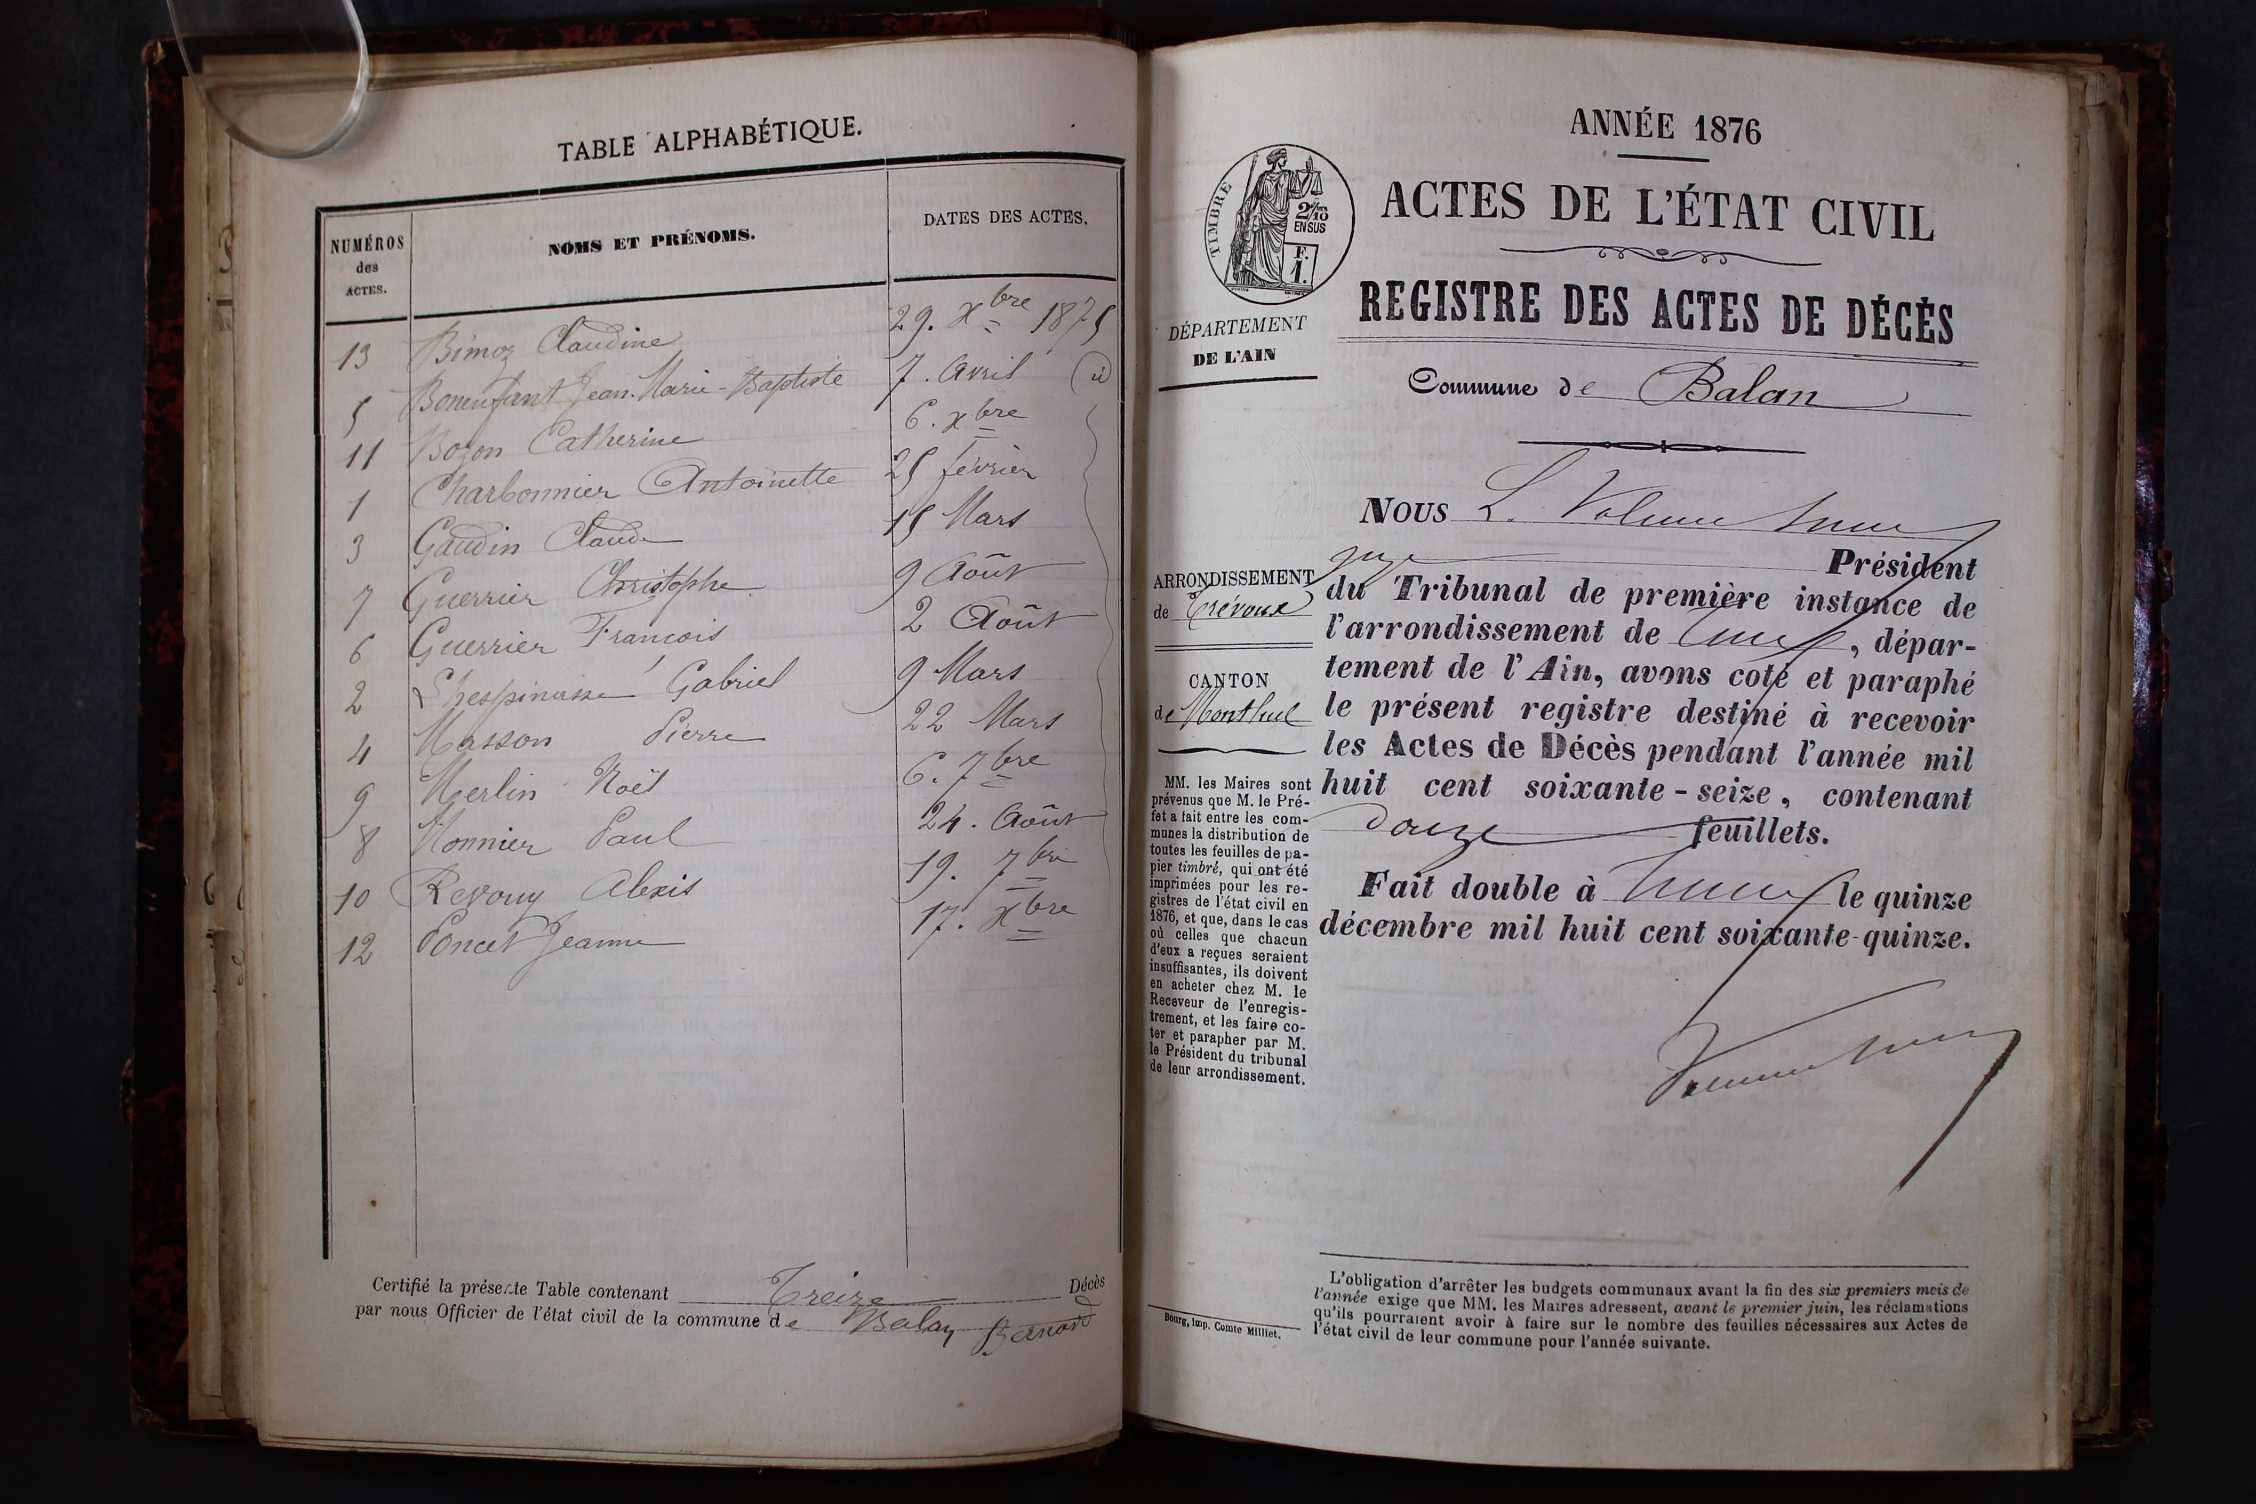 TABLE ALPHABÉTIQUE.
NUMÉROS des ACTES. NOMS ET PRÉNOMS. DATES DES ACTES.
13 Bimoz Claudine 29. Xbre 1875
5 Bonenfant Jean-Marie-Baptiste 7. Avril (id)
11 Bozon Catherine 6. Xbre
1 Charbonnier Antoinette 25 février
3 Gaudin Claude 15 Mars
7 Guerrier Christophe 9 Août
6 Guerrier François 2 Août
2 Lhespinasse Gabriel 9 Mars
4 Masson Pierre 22 Mars
9 Merlin Noël 6. 7bre
8 Monnier Paul 24. Août
10 Revouy Alexis 19. 7bre
12 Poncet Jeanne 17. Xbre
Certifié la présente Table contenant Treize Décès
par nous Officier de l'état civil de la commune de Balan Bernard
ANNÉE 1876
ACTES DE L'ÉTAT CIVIL
REGISTRE DES ACTES DE DÉCÈS
TIMBRE
2/10
EN SUS
F.
1.
DÉPARTEMENT
DE L'AIN
Commune de Balan
ARRONDISSEMENT
de Trévoux
CANTON
de Montluel
MM. les Maires sont
prévenus que M. le Pré-
fet a fait entre les com-
munes la distribution de
toutes les feuilles de pa-
pier timbré, qui ont été
imprimées pour les re-
gistres de l'état civil en
1876, et que, dans le cas
où celles que chacun
d'eux a reçues seraient
insuffisantes, ils doivent
en acheter chez M. le
Receveur de l'enregis-
trement, et les faire co-
ter et parapher par M.
le Président du tribunal
de leur arrondissement.
NOUS L.
juge Président
du Tribunal de première instance de
l'arrondissement de , dépar-
tement de l'Ain, avons coté et paraphé
le présent registre destiné à recevoir
les Actes de Décès pendant l'année mil
huit cent soixante-seize, contenant
douze feuillets.
Fait double à le quinze
décembre mil huit cent soixante-quinze.
L'obligation d'arrêter les budgets communaux avant la fin des six premiers mois de
l'année exige que MM. les Maires adressent, avant le premier juin, les réclamations
qu'ils pourraient avoir à faire sur le nombre des feuilles nécessaires aux Actes de
l'état civil de leur commune pour l'année suivante.
Bourg, imp. Comte Milliet.